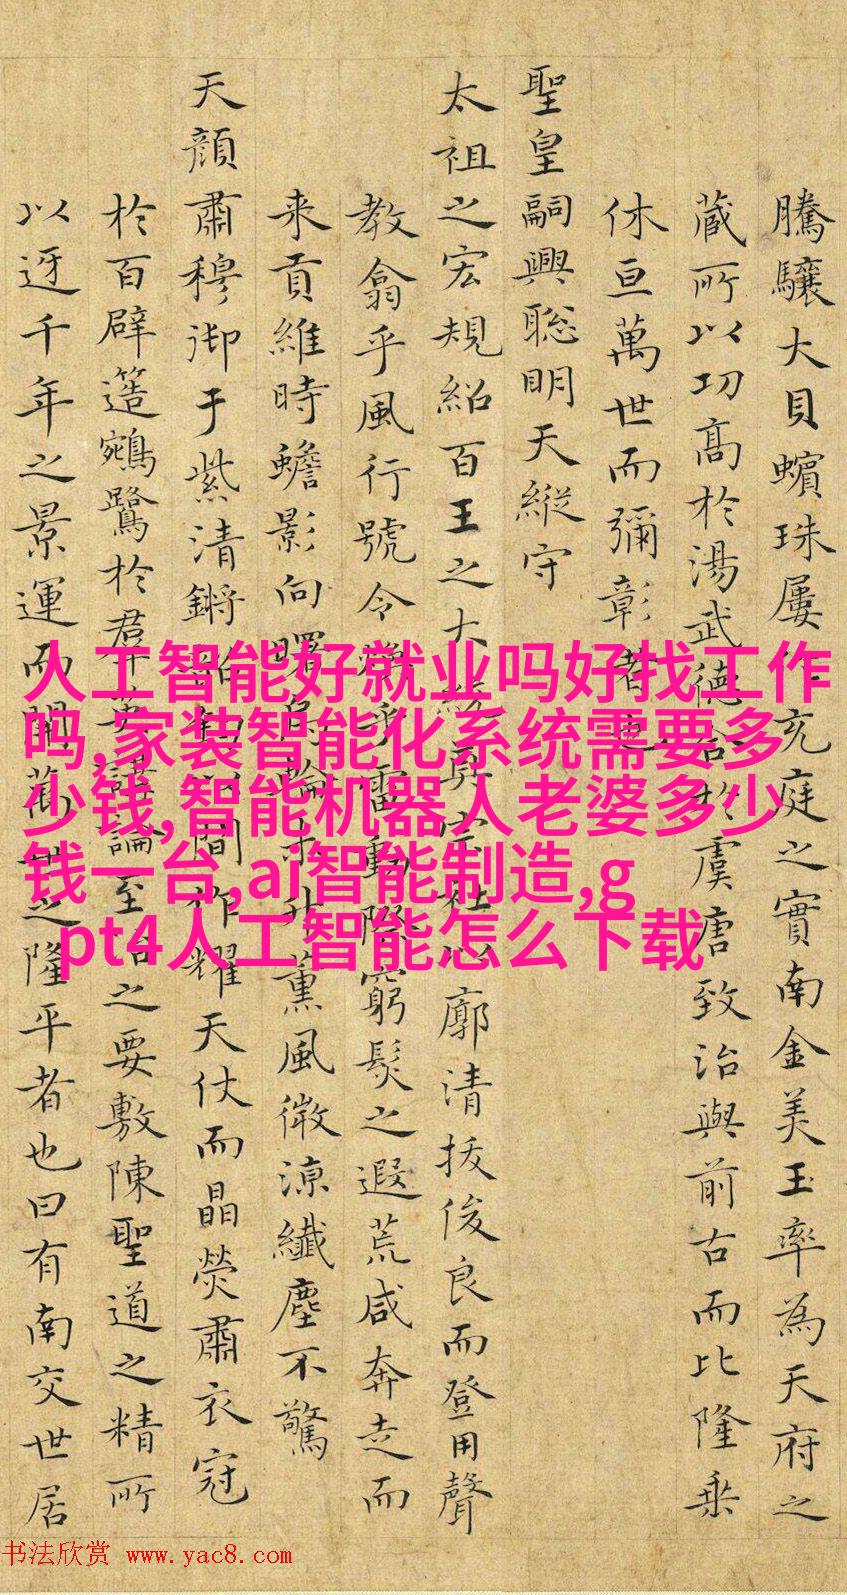 騰驤大貝蠙珠屢充庭之實南金美玉率為天府之
蔵所以功高於湯武德於虞唐致治與前古而比隆乗
休亘萬世而彌彰者也
聖皇嗣興聡明天縱守
太祖之宏規紹百王之大廓清抜俊良而登用聲
教翕乎風行號令乎雷動際窮髮之遐荒咸奔走而
来貢維時蟾影向曙薰風微涼纖塵不驚
天顔肅穆御于紫清鏘間作耀天仗而晶熒肅衣冠
於百辟簉鵷鷺於羣講論至治之要敷陳聖道之精所
以迓千年之景運而開萬世之隆平者也曰有南交世居
人工智能好就业吗好找工作
吗,家装智能化系统需要多
少钱,智能机器人老婆多少
钱一台,ai智能制造,g
pt4人工智能怎么下载
书法欣赏 www.yac8.com